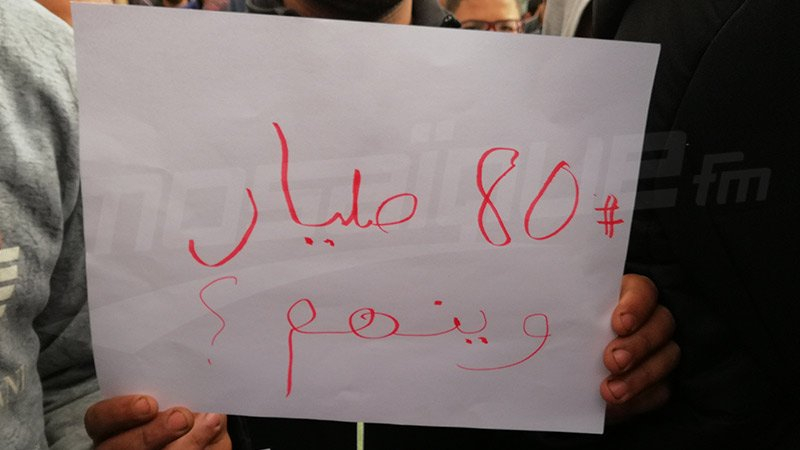 #80 مليار
وينهم ؟
mosaïque fm